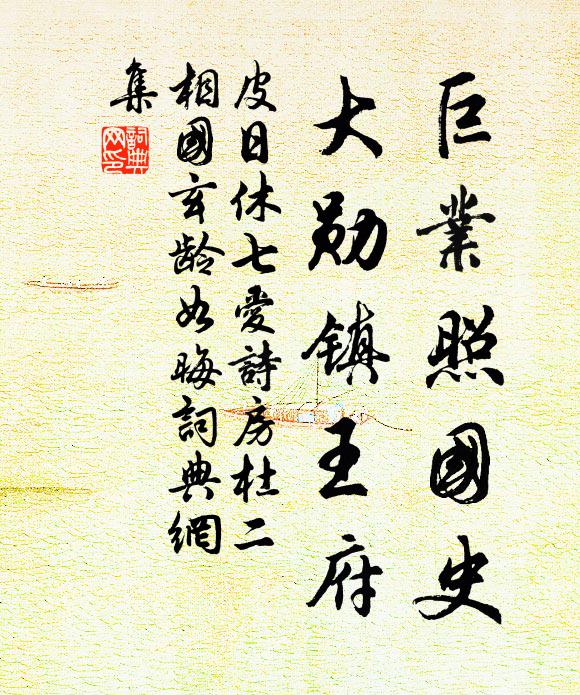 巨業照國史
大勋镇王府
皮日休七愛詩房杜二
相國玄龄如晦詞典網
集
詞典
网印